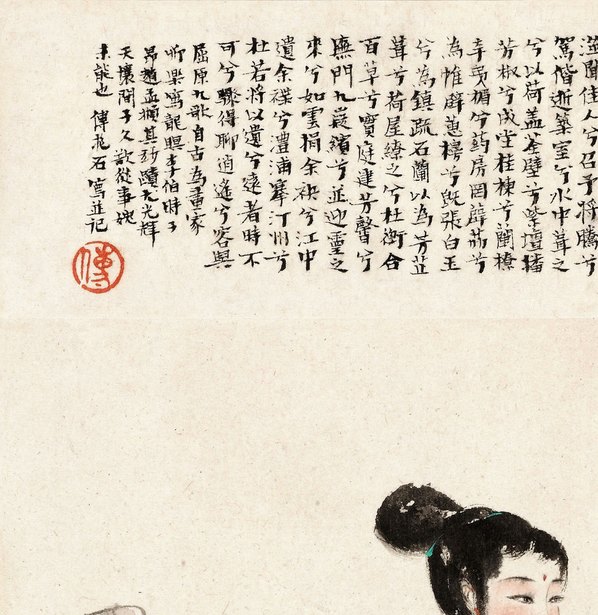 澨聞佳人兮召予將騰兮
駕偕逝築室兮水中葺之
兮以荷蓋荃壁兮紫壇播
芳椒兮成堂桂棟兮蘭橑
辛夷楣兮葯房罔薜荔兮
為帷擗蕙櫋兮既張白玉
兮為鎮疏石蘭以為芳芷
葺兮荷屋繚之兮杜衡合
百草兮實庭建芳馨兮
廡門九嶷繽兮並迎靈之
來兮如雲捐余袂兮江中
遺余褋兮澧浦搴汀州兮
杜若將以遺兮遠者時不
可兮驟得聊逍遙兮容與
屈原九歌自古為畫家
所樂寫龍眠李伯時子
昂趙孟頫其妙蹟尤光輝
天壤間予久欲從事愧
未能也 傅抱石寫並記
傅